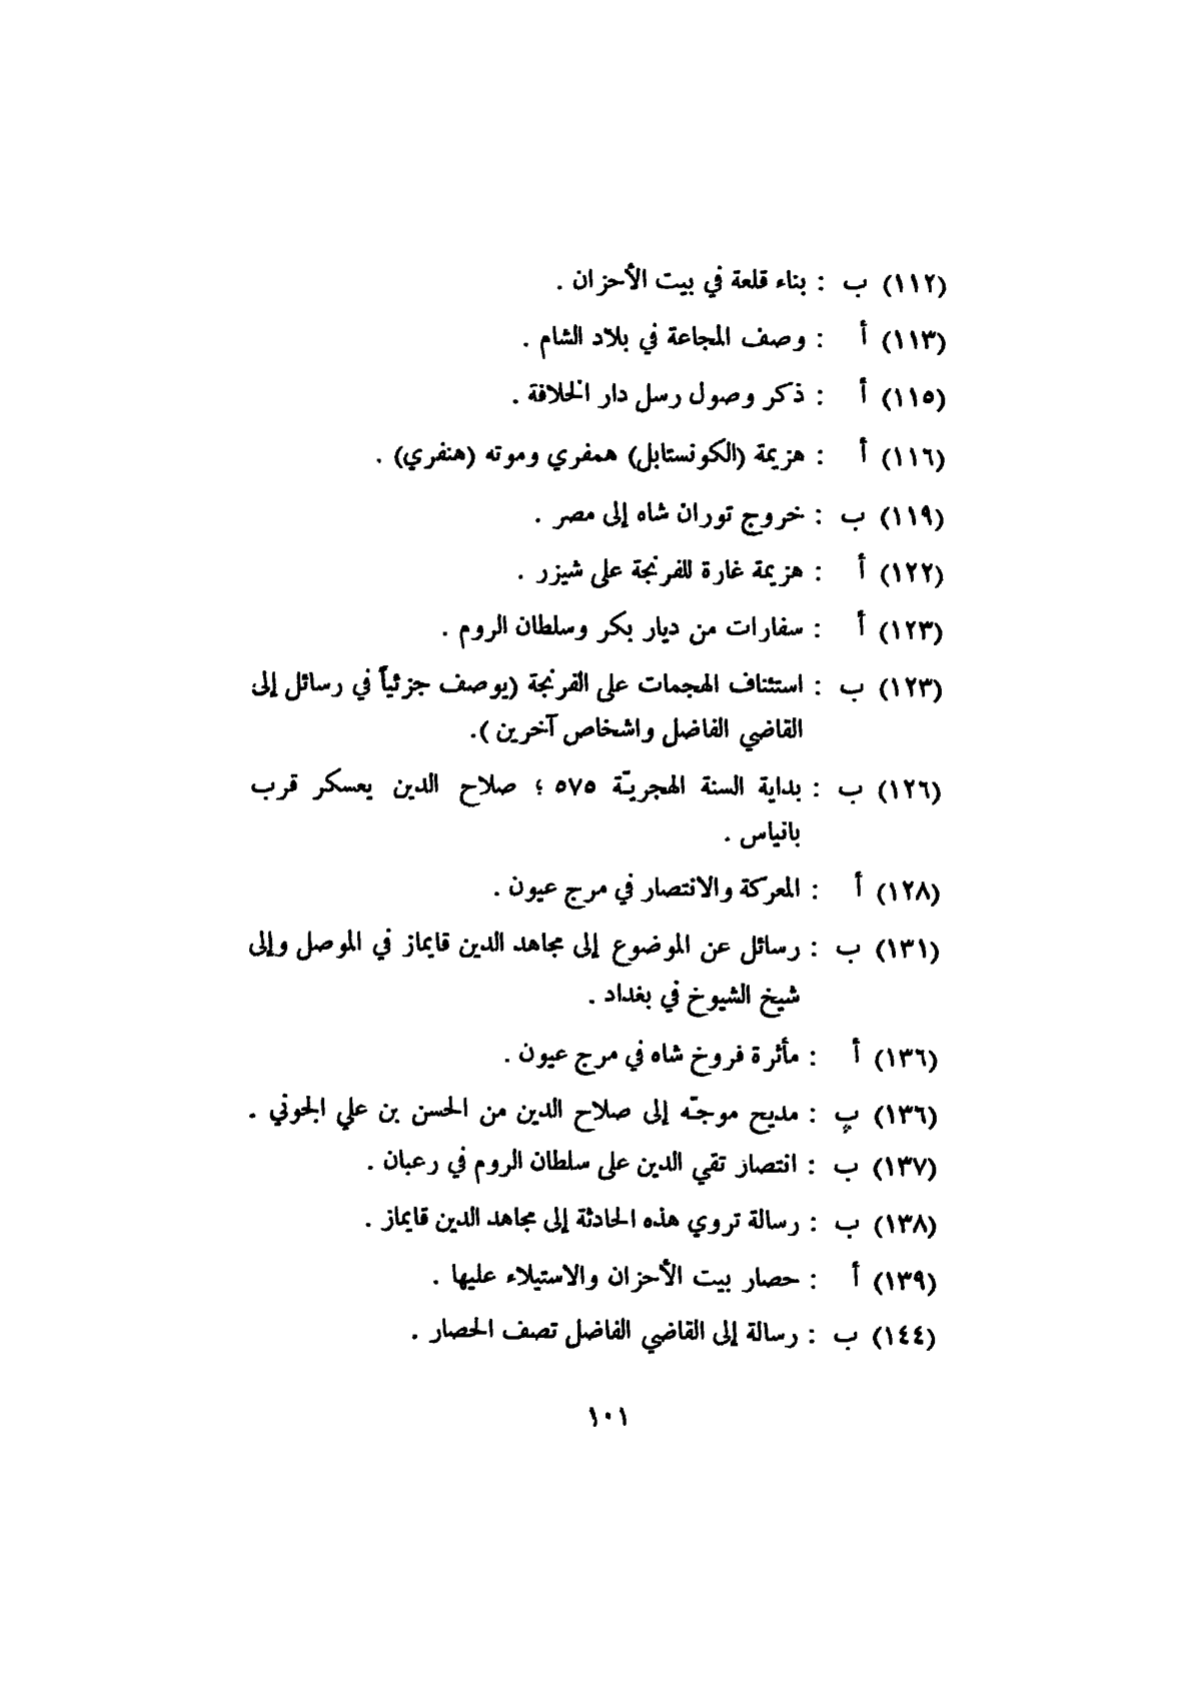 (١١٢) ب : بناء قلعة في بيت الأحزان .
(١١٣) أ : وصف المجاعة في بلاد الشام .
(١١٥) أ : ذكر وصول رسل دار الخلافة .
(١١٦) أ : هزيمة (الكونستابل) همفري وموته (هنفري) .
(١١٩) ب : خروج توران شاه إلى مصر .
(١٢٢) أ : هزيمة غارة للفرنجة على شيزر .
(١٢٣) أ : سفارات من ديار بكر وسلطان الروم .
(١٢٣) ب : استئناف الهجمات على الفرنجة (يوصف جزئياً في رسائل إلى
القاضي الفاضل واشخاص آخرين ).
(١٢٦) ب : بداية السنة الهجريّة ٥٧٥ ؛ صلاح الدين يعسكر قرب
بانياس .
(١٢٨) أ : المعركة والانتصار في مرج عيون .
(١٣١) ب : رسائل عن الموضوع إلى مجاهد الدين قايماز في الموصل وإلى
شيخ الشيوخ في بغداد .
(١٣٦) أ : مأثرة فروخ شاه في مرج عيون .
(١٣٦) ب : مديح موجّه إلى صلاح الدين من الحسن بن علي الجوني .
(١٣٧) ب : انتصار تقي الدين على سلطان الروم في رعبان .
(١٣٨) ب : رسالة تروي هذه الحادثة إلى مجاهد الدين قايماز .
(١٣٩) أ : حصار بيت الأحزان والاستيلاء عليها .
(١٤٤) ب : رسالة إلى القاضي الفاضل تصف الحصار .
١٠١